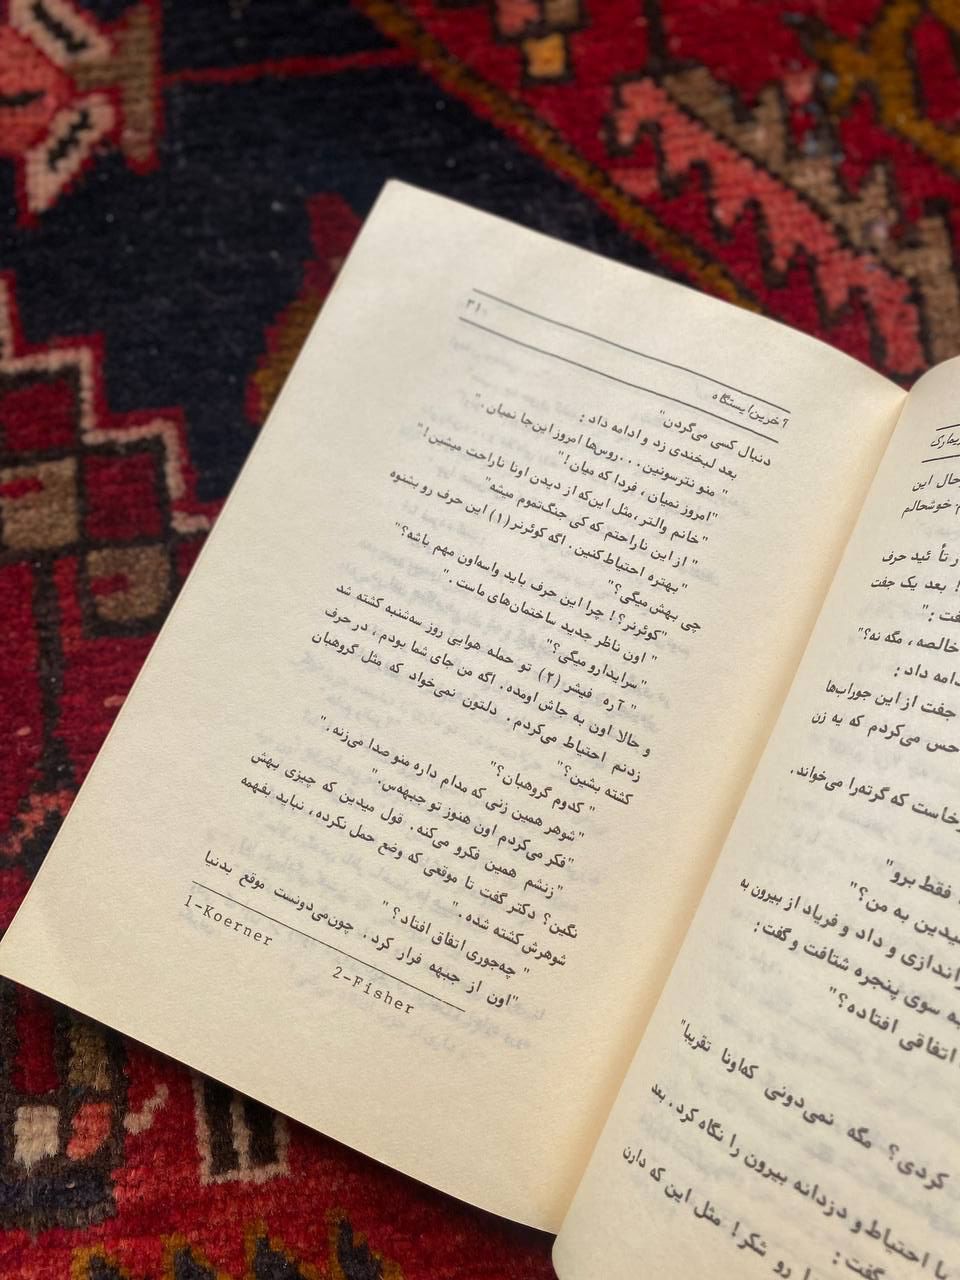 آخرین ایستگاه
۳۱
دنبال کسی می‌گردن"
بعد لبخندی زد و ادامه داد :
" منو نترسونین...روس‌ها امروز این‌جا نمیان ."
"امروز نمیان ، فردا که میان !"
"خانم والتر ، مثل این‌که از دیدن اونا ناراحت میشین !"
" از این ناراحتم که کی جنگ تموم میشه"
" بهتره احتیاط کنین . اگه کوئرنر (۱) این حرف رو بشنوه
چی بهش میگی؟"
"کوئرنر؟! چرا این حرف باید واسه‌اون مهم باشه؟"
" اون ناظر جدید ساختمان‌های ماست ."
"سرایدارو میگی؟"
" آره فیشر (۲) تو حمله هوایی روز سه‌شنبه کشته شد
و حالا اون به جاش اومده . اگه من جای شما بودم ، در حرف
زدنم احتیاط می‌کردم . دلتون نمی‌خواد که مثل گروهبان
کشته بشین؟"
" کدوم گروهبان؟"
"شوهر همین زنی که مدام داره منو صدا می‌زنه ."
"فکر می‌کردم اون هنوز تو جبهه‌س."
"زنشم همین فکرو می‌کنه . قول میدین که چیزی بهش
نگین؟ دکتر گفت تا موقعی که وضع حمل نکرده ، نباید بفهمه
شوهرش کشته شده ."
" چه‌جوری اتفاق افتاد؟ "
"اون از جبهه فرار کرد . چون‌می‌دونست موقع بدنیا
1-Koerner
2-Fisher
حال این
خوشحالم
تأ ئید حرف
! بعد یک جفت
خالصه ، مگه نه؟"
جفت از این جوراب‌ها
حس می‌کردم که یه زن
که گرته‌را می‌خواند .
فقط برو"
به من؟"
و داد و فریاد از بیرون به
به سوی پنجره شتافت و گفت :
اتفاقی افتاده؟"
کردی؟ مگه نمی‌دونی که‌اونا تقریبا"
با احتیاط و دزدانه بیرون را نگاه کرد . بعد
گفت :
رو شکر! مثل این که دارن